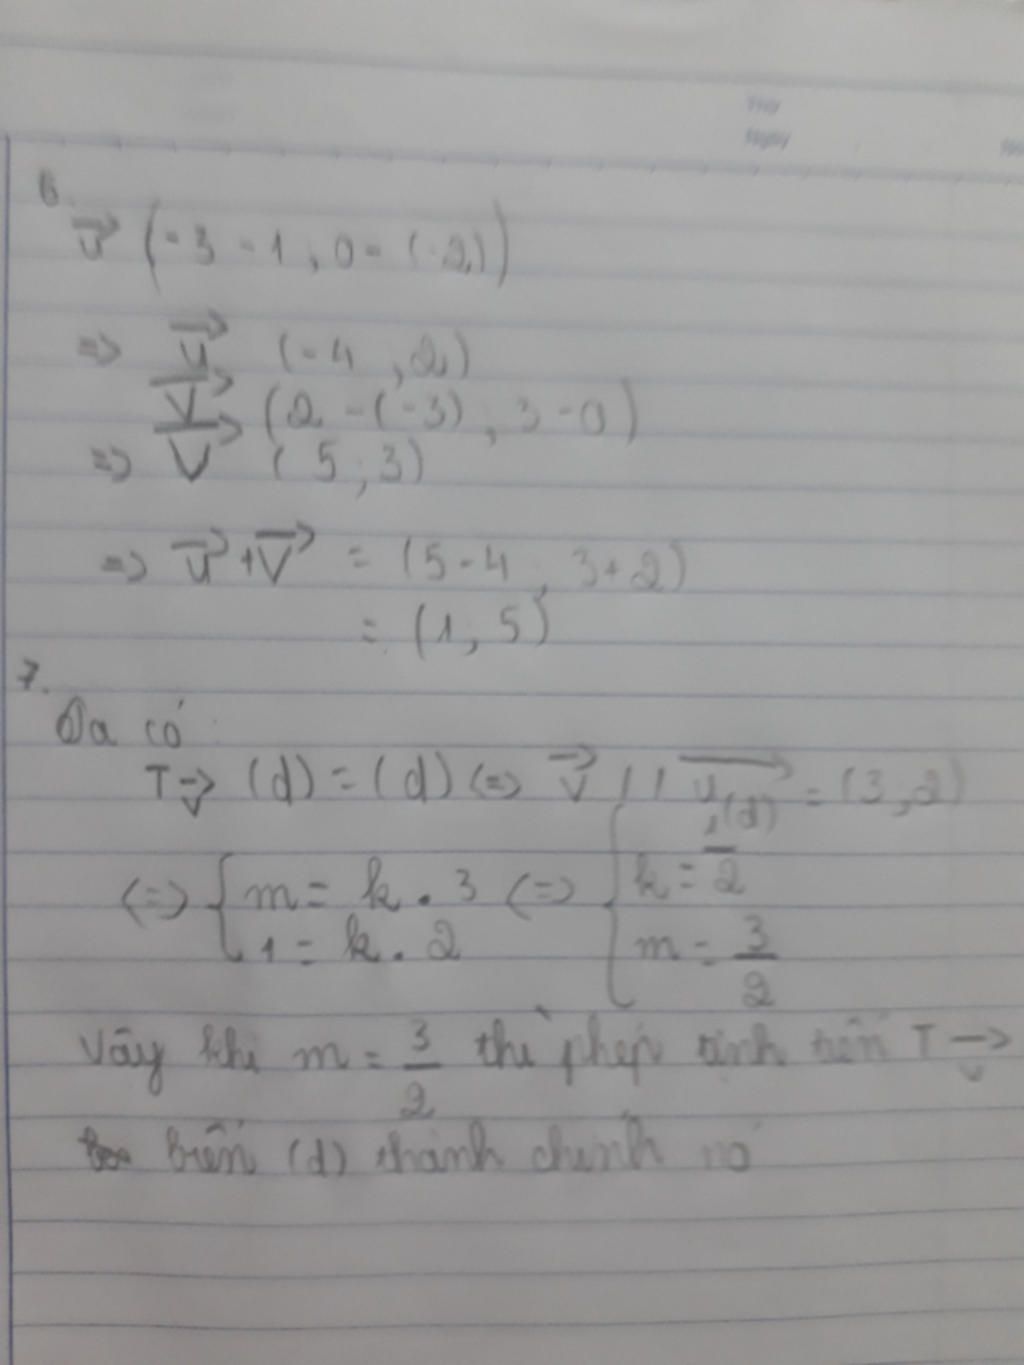 Thứ
Ngày
6.
u⃗ (-3 - 1, 0 - (-2))
=> u⃗ (-4, 2)
v⃗ (2 - (-3), 3 - 0)
=> v⃗ (5, 3)
=> u⃗ + v⃗ = (5 - 4, 3 + 2)
= (1, 5)
7.
Ta có:
T v⃗ (d) = (d) <=> v⃗ // u⃗(d) = (3, 2)
<=> { m = k . 3 <=> { k = 1/2
1 = k . 2 m = 3/2
Vậy khi m = 3/2 thì phép tịnh tiến T v⃗
biến (d) thành chính nó